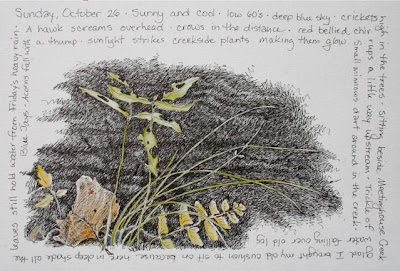 Sunday, October 26 · Sunny and cool · low 60's · deep blue sky · crickets
high in the trees. Sitting beside Meetinghouse Creek
glad I brought my old cushion to sit on because here in deep shade all the
leaves still hold water from Friday's heavy rain.
A hawk screams overhead · crows in the distance · red bellied, chir
rups a little way upstream. Trickle of
water falling over old log
Blue Jays. Acorns fall with
a thump · sunlight strikes creekside plants making them glow.
Small minnows dart around in the creek.